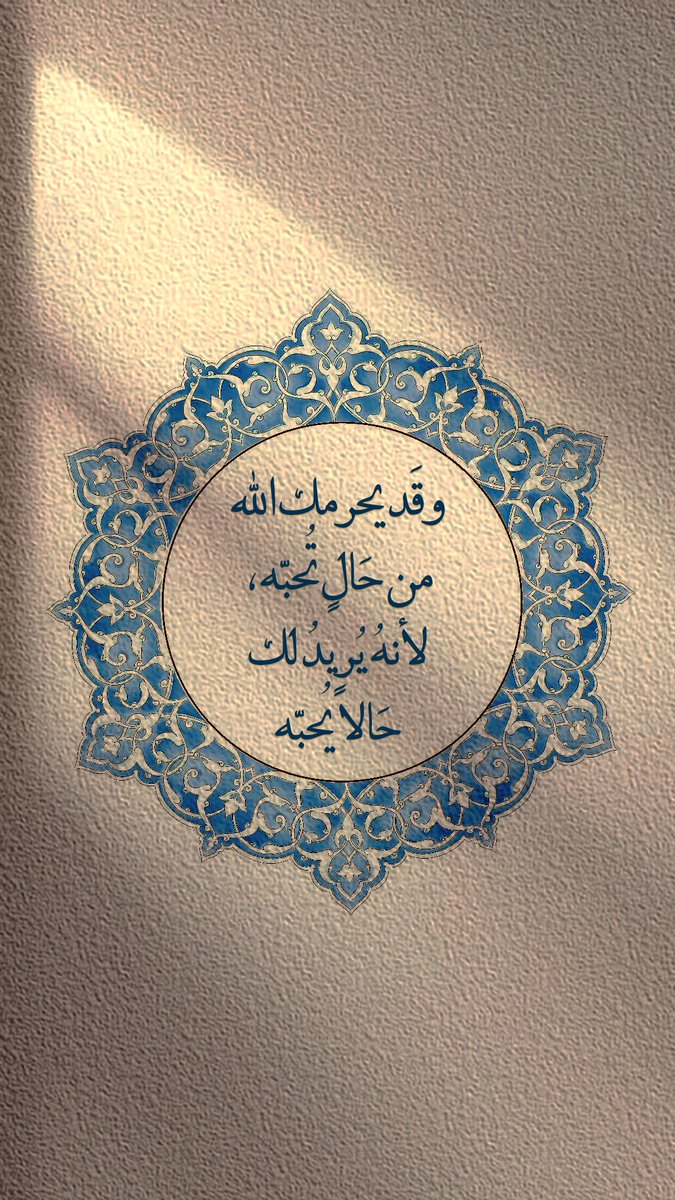 وقَد يحرمك الله
من حَالٍ تُحبّه،
لأنهُ يُريدُ لك
حَالاً يُحبّه